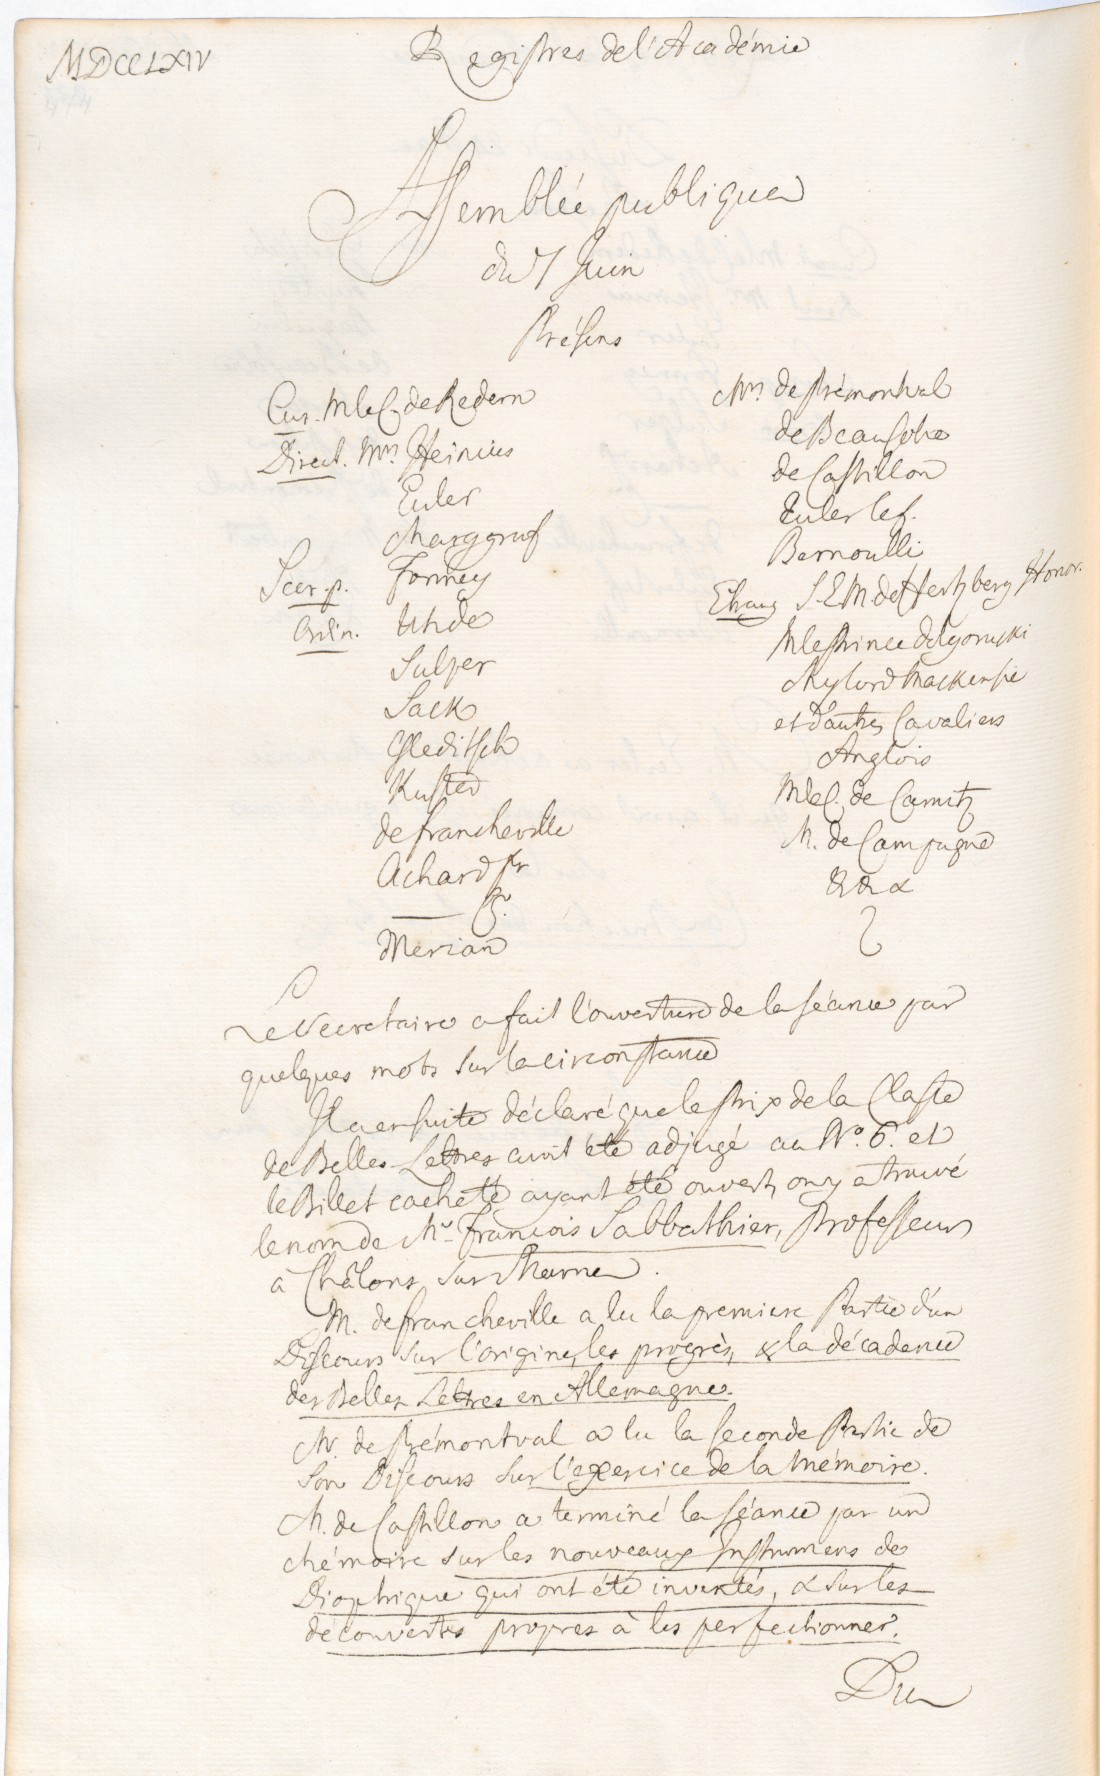 MDCCLXIV
Registres de l'Académie
Assemblée publique
du 7 Juin
Présens
Cur. M le C. de Redern
Direct. Mrs. Heinius
Euler
Marggraf
Secr. p. Formey
Ordin. Uhde
Sulzer
Sack
Gleditsch
Kuster
de Francheville
Achard pr
— f.
Merian
Mrs. de Prémontval
de Beausobre
de Castillon
Euler le f.
Bernoulli
Etrang S. E. M. de Hertzberg Honor.
M le Prince Dolgorucki
Mylord Mackensie
et d'autres Cavaliers
Anglois
M le C. de Camitz
M. de Campagne
& & &
Le Secretaire a fait l'ouverture de la séance par
quelques mots sur la circonstance
Il a ensuite déclaré que le Prix de la Classe
de Belles Lettres avoit été adjugé au No. 6. et
le Billet cacheté ayant été ouvert, on y a trouvé
le nom de Mr. François Sabbathier, Professeur
à Châlons sur Marne.
M. de Francheville a lu la premiere Partie d'un
Discours sur l'origine, les progrès, & la décadence
des Belles Lettres en Allemagne.
M. de Prémontval a lu la seconde Partie de
son Discours sur l'exercice de la Mémoire.
M. de Castillon a terminé la séance par un
Mémoire sur les nouveaux Instrumens de
Dioptrique qui ont été inventés, & sur les
découvertes propres à les perfectionner.
Du